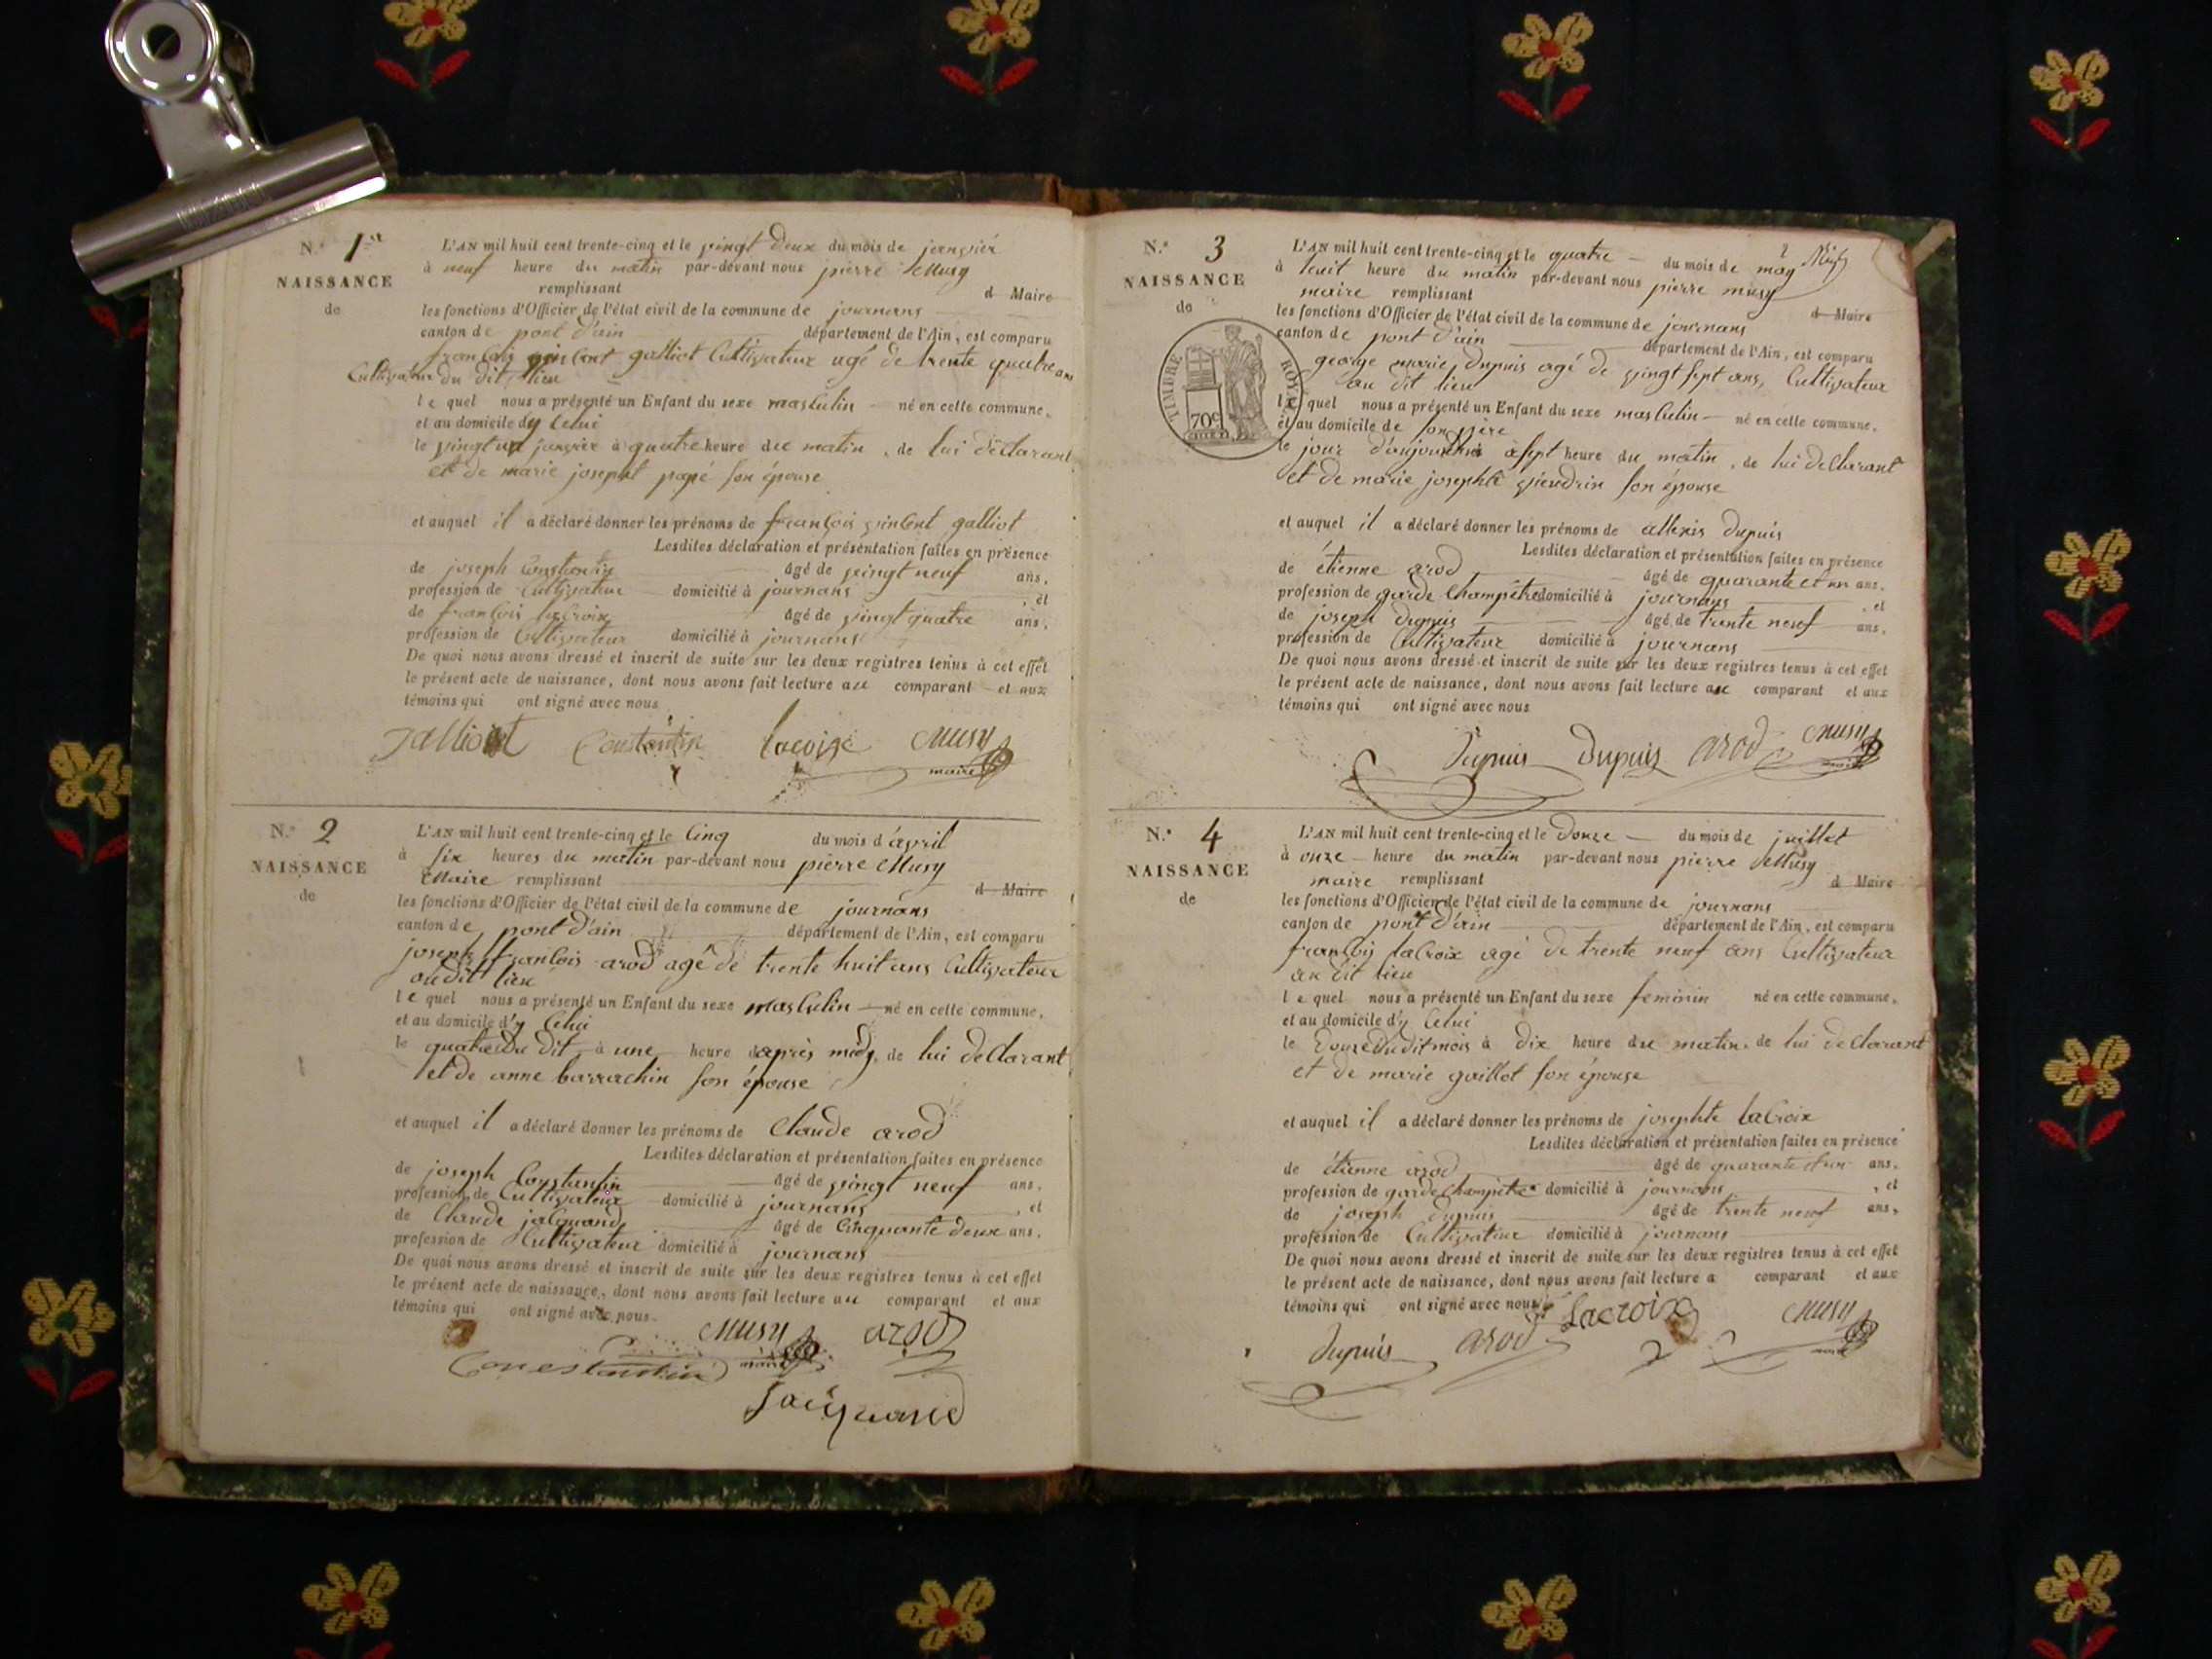 N.° 1er
NAISSANCE
de
L'AN mil huit cent trente-cinq et le vingt deux du mois de janvier
à neuf heure du matin par-devant nous pierre Musy
remplissant d Maire
les fonctions d'Officier de l'état civil de la commune de journans
canton de pont d'ain département de l'Ain, est comparu
françois vincent galliot Cultivateur agé de trente quatre ans
Cultivateur du dit lieu
le quel nous a présenté un Enfant du sexe masculin né en cette commune,
et au domicile dy Celui
le vingt un janvier à quatre heure du matin, de lui déClarant
et de marie josepht papé son épouse
et auquel il a déclaré donner les prénoms de françois vincent galliot
Lesdites déclaration et présentation faites en présence
de joseph Constantin âgé de vingt neuf ans,
profession de Cultivateur domicilié à journans, et
de françois laCroix âgé de vingt quatre ans,
profession de Cultivateur domicilié à journans
De quoi nous avons dressé et inscrit de suite sur les deux registres tenus à cet effet
le présent acte de naissance, dont nous avons fait lecture au comparant et aux
témoins qui ont signé avec nous
galliot Constantin lacoixe Musy
maire
N.° 2
NAISSANCE
de
L'AN mil huit cent trente-cinq et le Cinq du mois d'avril
à six heures du matin par-devant nous pierre Musy
Maire remplissant d Maire
les fonctions d'Officier de l'état civil de la commune de journans
canton de pont d'ain département de l'Ain, est comparu
joseph françois arod agé de trente huit ans Cultivateur
au dit lieu
le quel nous a présenté un Enfant du sexe masCulin né en cette commune,
et au domicile d'y Celui
le quatre du dit à une heure d'après midy, de lui deClarant
et de anne barrachin son épouse
et auquel il a déclaré donner les prénoms de Claude arod
Lesdites déclaration et présentation faites en présence
de joseph Constantin âgé de vingt neuf ans,
profession de Cultivateur domicilié à journans, et
de Claude jaCquand âgé de Cinquante deux ans,
profession de Cultivateur domicilié à journans
De quoi nous avons dressé et inscrit de suite sur les deux registres tenus à cet effet
le présent acte de naissance, dont nous avons fait lecture au comparant et aux
témoins qui ont signé avec nous.
Musy arod
Conestantin maire
Jacquand
N.° 3
NAISSANCE
de
TIMBRE ROYAL
70c
2
L'AN mil huit cent trente-cinq et le quatre du mois de may
à huit heure du matin par-devant nous pierre musy
maire remplissant d Maire
les fonctions d'Officier de l'état civil de la commune de journans
canton de pont d'ain département de l'Ain, est comparu
george marie Dupuis agé de vingt sept ans, Cultivateur
au dit lieu
le quel nous a présenté un Enfant du sexe masCulin né en cette commune,
et au domicile de son père
le jour d'aujourdhui à sept heure du matin, de lui deClarant
et de marie josephte vieudrin son épouse
et auquel il a déclaré donner les prénoms de allexis Dupuis
Lesdites déclaration et présentation faites en présence
de étienne arod âgé de quarante et un ans,
profession de garde Champêtre domicilié à journans, et
de joseph Dupuis âgé de trente neuf ans,
profession de Cultivateur domicilié à journans
De quoi nous avons dressé et inscrit de suite sur les deux registres tenus à cet effet
le présent acte de naissance, dont nous avons fait lecture au comparant et aux
témoins qui ont signé avec nous
Dupuis Dupuis arod Musy
maire
N.° 4
NAISSANCE
de
L'AN mil huit cent trente-cinq et le Douze du mois de juillet
à onze heure du matin par-devant nous pierre Musy
maire remplissant d Maire
les fonctions d'Officier de l'état civil de la commune de journans
canton de pont d'ain département de l'Ain, est comparu
françois laCroix agé de trente neuf ans Cultivateur
au dit lieu
le quel nous a présenté un Enfant du sexe feminin né en cette commune,
et au domicile d'y Celui
le Douze du dit mois à dix heure du matin, de lui deClarant
et de marie gaillot son épouse
et auquel il a déclaré donner les prénoms de josephte laCroix
Lesdites déclaration et présentation faites en présence
de étienne arod âgé de quarante et un ans,
profession de garde Champêtre domicilié à journans, et
de joseph Dupuis âgé de trente neuf ans,
profession de Cultivateur domicilié à journans
De quoi nous avons dressé et inscrit de suite sur les deux registres tenus à cet effet
le présent acte de naissance, dont nous avons fait lecture a comparant et aux
témoins qui ont signé avec nous
Lacroix Musy
Dupuis arod maire